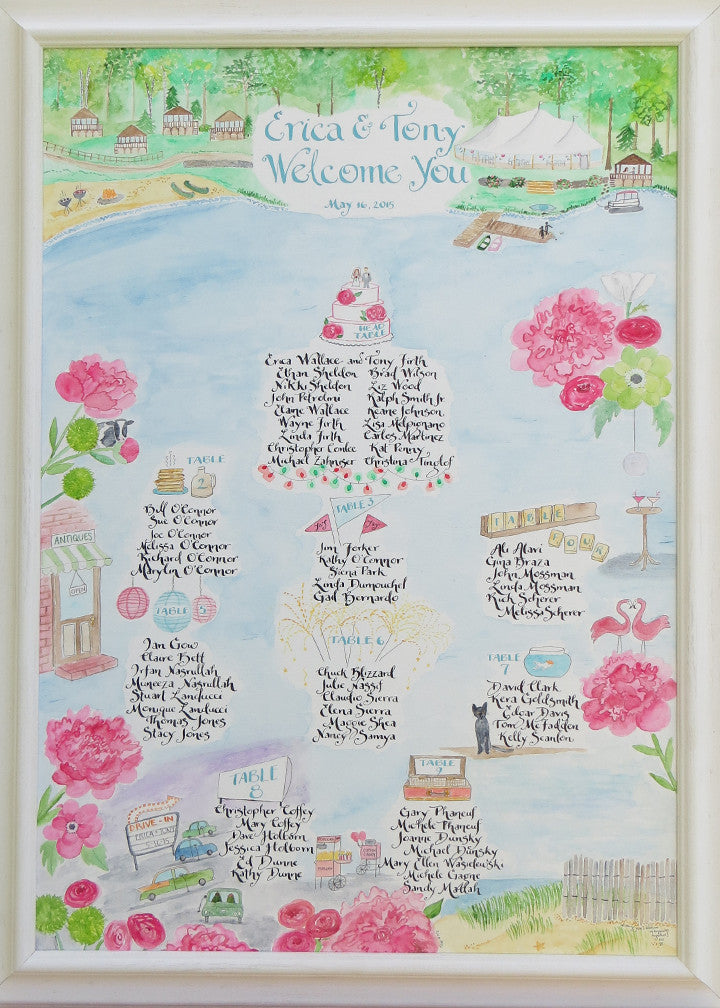 Erica & Tony
Welcome You
May 16, 2015
HEAD
TABLE
Erica Wallace and Tony Firth
Ethan Sheldon Brad Wilson
Nikki Sheldon Liz Wood
John Petrolini Ralph Smith Jr
Elaine Wallace Keane Johnson
Wayne Firth Lisa Melpignano
Linda Firth Carlos Martinez
Christopher Conlee Kat Penny
Michael Zahniser Christina Tinglof
TABLE
2
Bill O'Connor
Sue O'Connor
Joe O'Connor
Melissa O'Connor
Richard O'Connor
Marylin O'Connor
TABLE 3
Jim Forker
Kathy O'Connor
Siena Park
Linda Dumouchel
Gail Bernardo
TABLE
FOUR
Ali Alavi
Gina Braza
John Mossman
Linda Mossman
Rick Scherer
Melissa Scherer
ANTIQUES
OPEN
TABLE 5
Ian Gow
Claire Bett
Irfan Nasrullah
Muneeza Nasrullah
Stuart Zanducci
Monique Zanducci
Thomas Jones
Stacy Jones
TABLE 6
Chuck Blizzard
Julie Nassif
Claudio Sierra
Elena Sierra
Maggie Shea
Nancy Samiya
TABLE
7
David Clark
Kera Goldsmith
Edgar Davis
Tom McFadden
Kelly Scanlon
TABLE
8
Christopher Coffey
Mary Coffey
Dave Holborn
Jessica Holborn
Ed Dunne
Kathy Dunne
DRIVE-IN
ERICA & TONY
TABLE
9
Gary Phaneuf
Michele Phaneuf
Joanne Dunsky
Michael Dunsky
Mary Ellen Wasielewski
Michele Gagne
Sandy Matlah